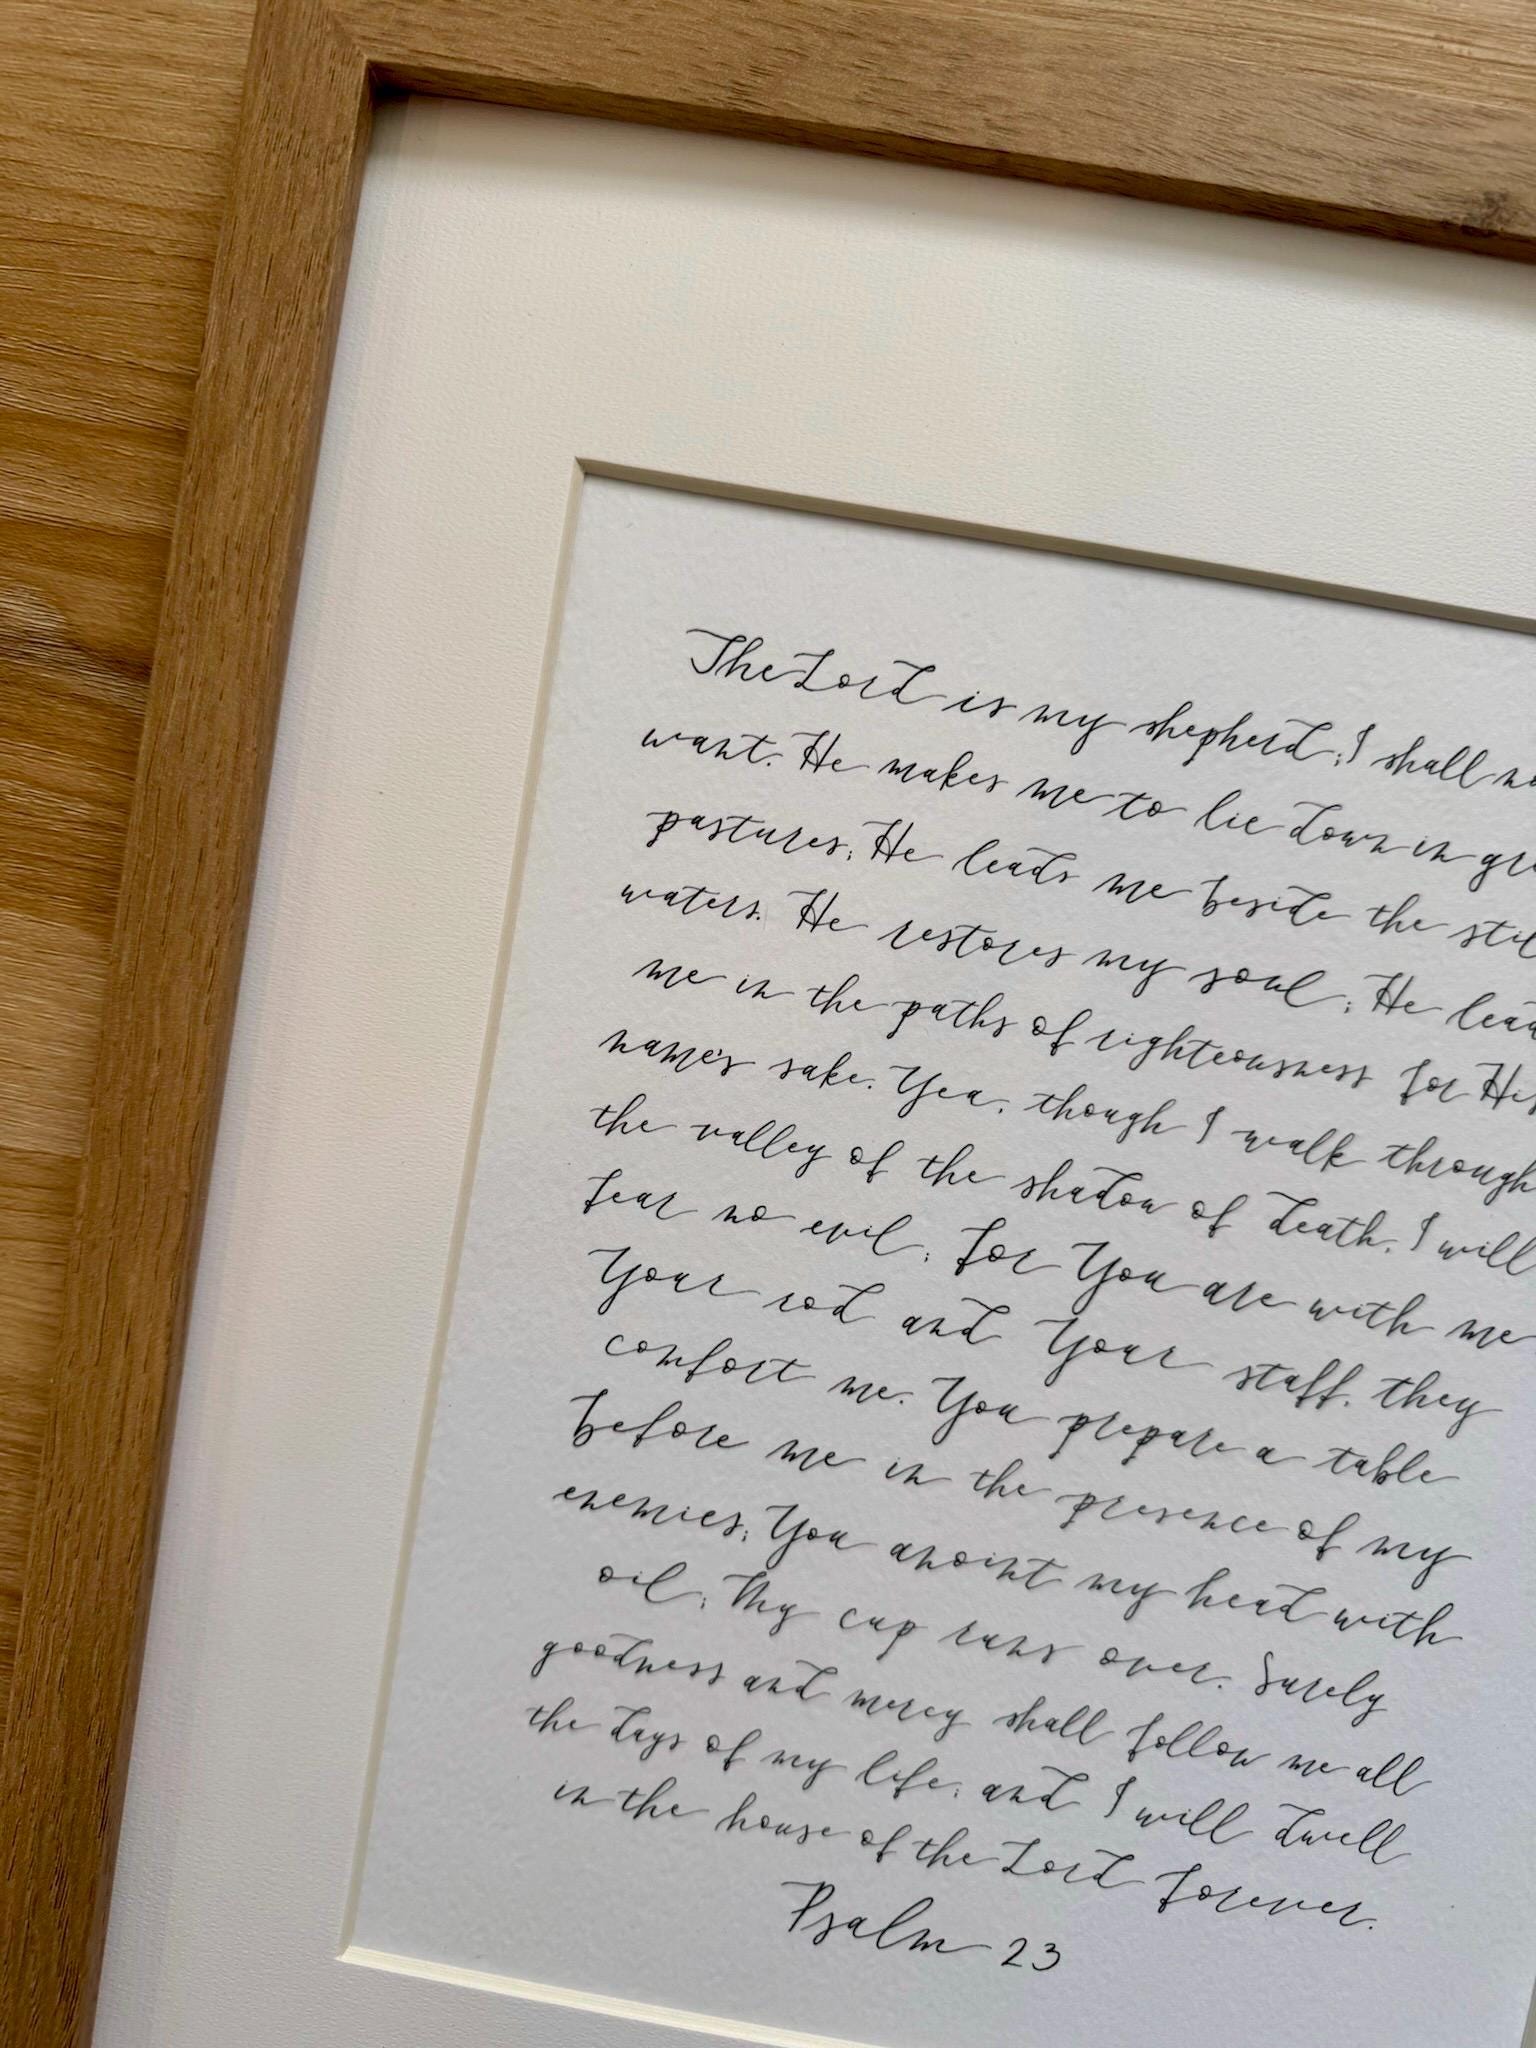 The Lord is my shepherd; I shall no
want. He makes me to lie down in gre
pastures; He leads me beside the stil
waters. He restores my soul; He lead
me in the paths of righteousness for His
name's sake. Yea, though I walk through
the valley of the shadow of death, I will
fear no evil; for You are with me
Your rod and Your staff, they
comfort me. You prepare a table
before me in the presence of my
enemies; You anoint my head with
oil; My cup runs over. Surely
goodness and mercy shall follow me all
the days of my life; and I will dwell
in the house of the Lord forever.
Psalm 23